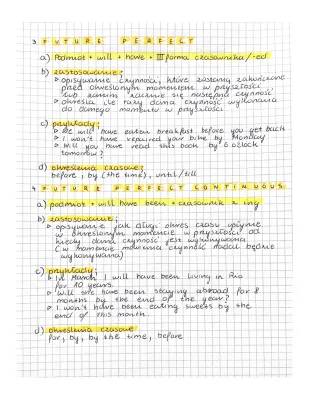 3 FUTURE PERFECT
a) Podmiot + will + have + III forma czasownika /-ed
b) zastosowanie:
opisywanie czynności, które zostaną zakończone
przed określonym momentem w przyszłości
lub zanim zacznie się następna czynność
określa ile razy dana czynność wykonana
do danego momentu w przyszłości
c) przykłady:
We will have eaten breakfast before you get back
I won't have repaired your bike by Monday
Will you have read this book by 6 o'clock
tomorrow?
d) określenia czasowe:
before, by (the time), until/till
4 FUTURE PERFECT CONTINUOUS
a) podmiot + will have been + czasownik z ing
b) zastosowanie:
opisywanie jak długi okres czasu upłynie
w określonym momencie w przyszłości od
kiedy dana czynność jest wykonywana
(w momencie mówienia czynność nadal będzie
wykonywana)
c) przykłady:
1st March I will have been living in Rio
for 10 years.
Will she have been staying abroad for 8
months by the end of the year?
I won't have been eating sweets by the
end of this month.
d) określenia czasowe
for, by, by the time, before